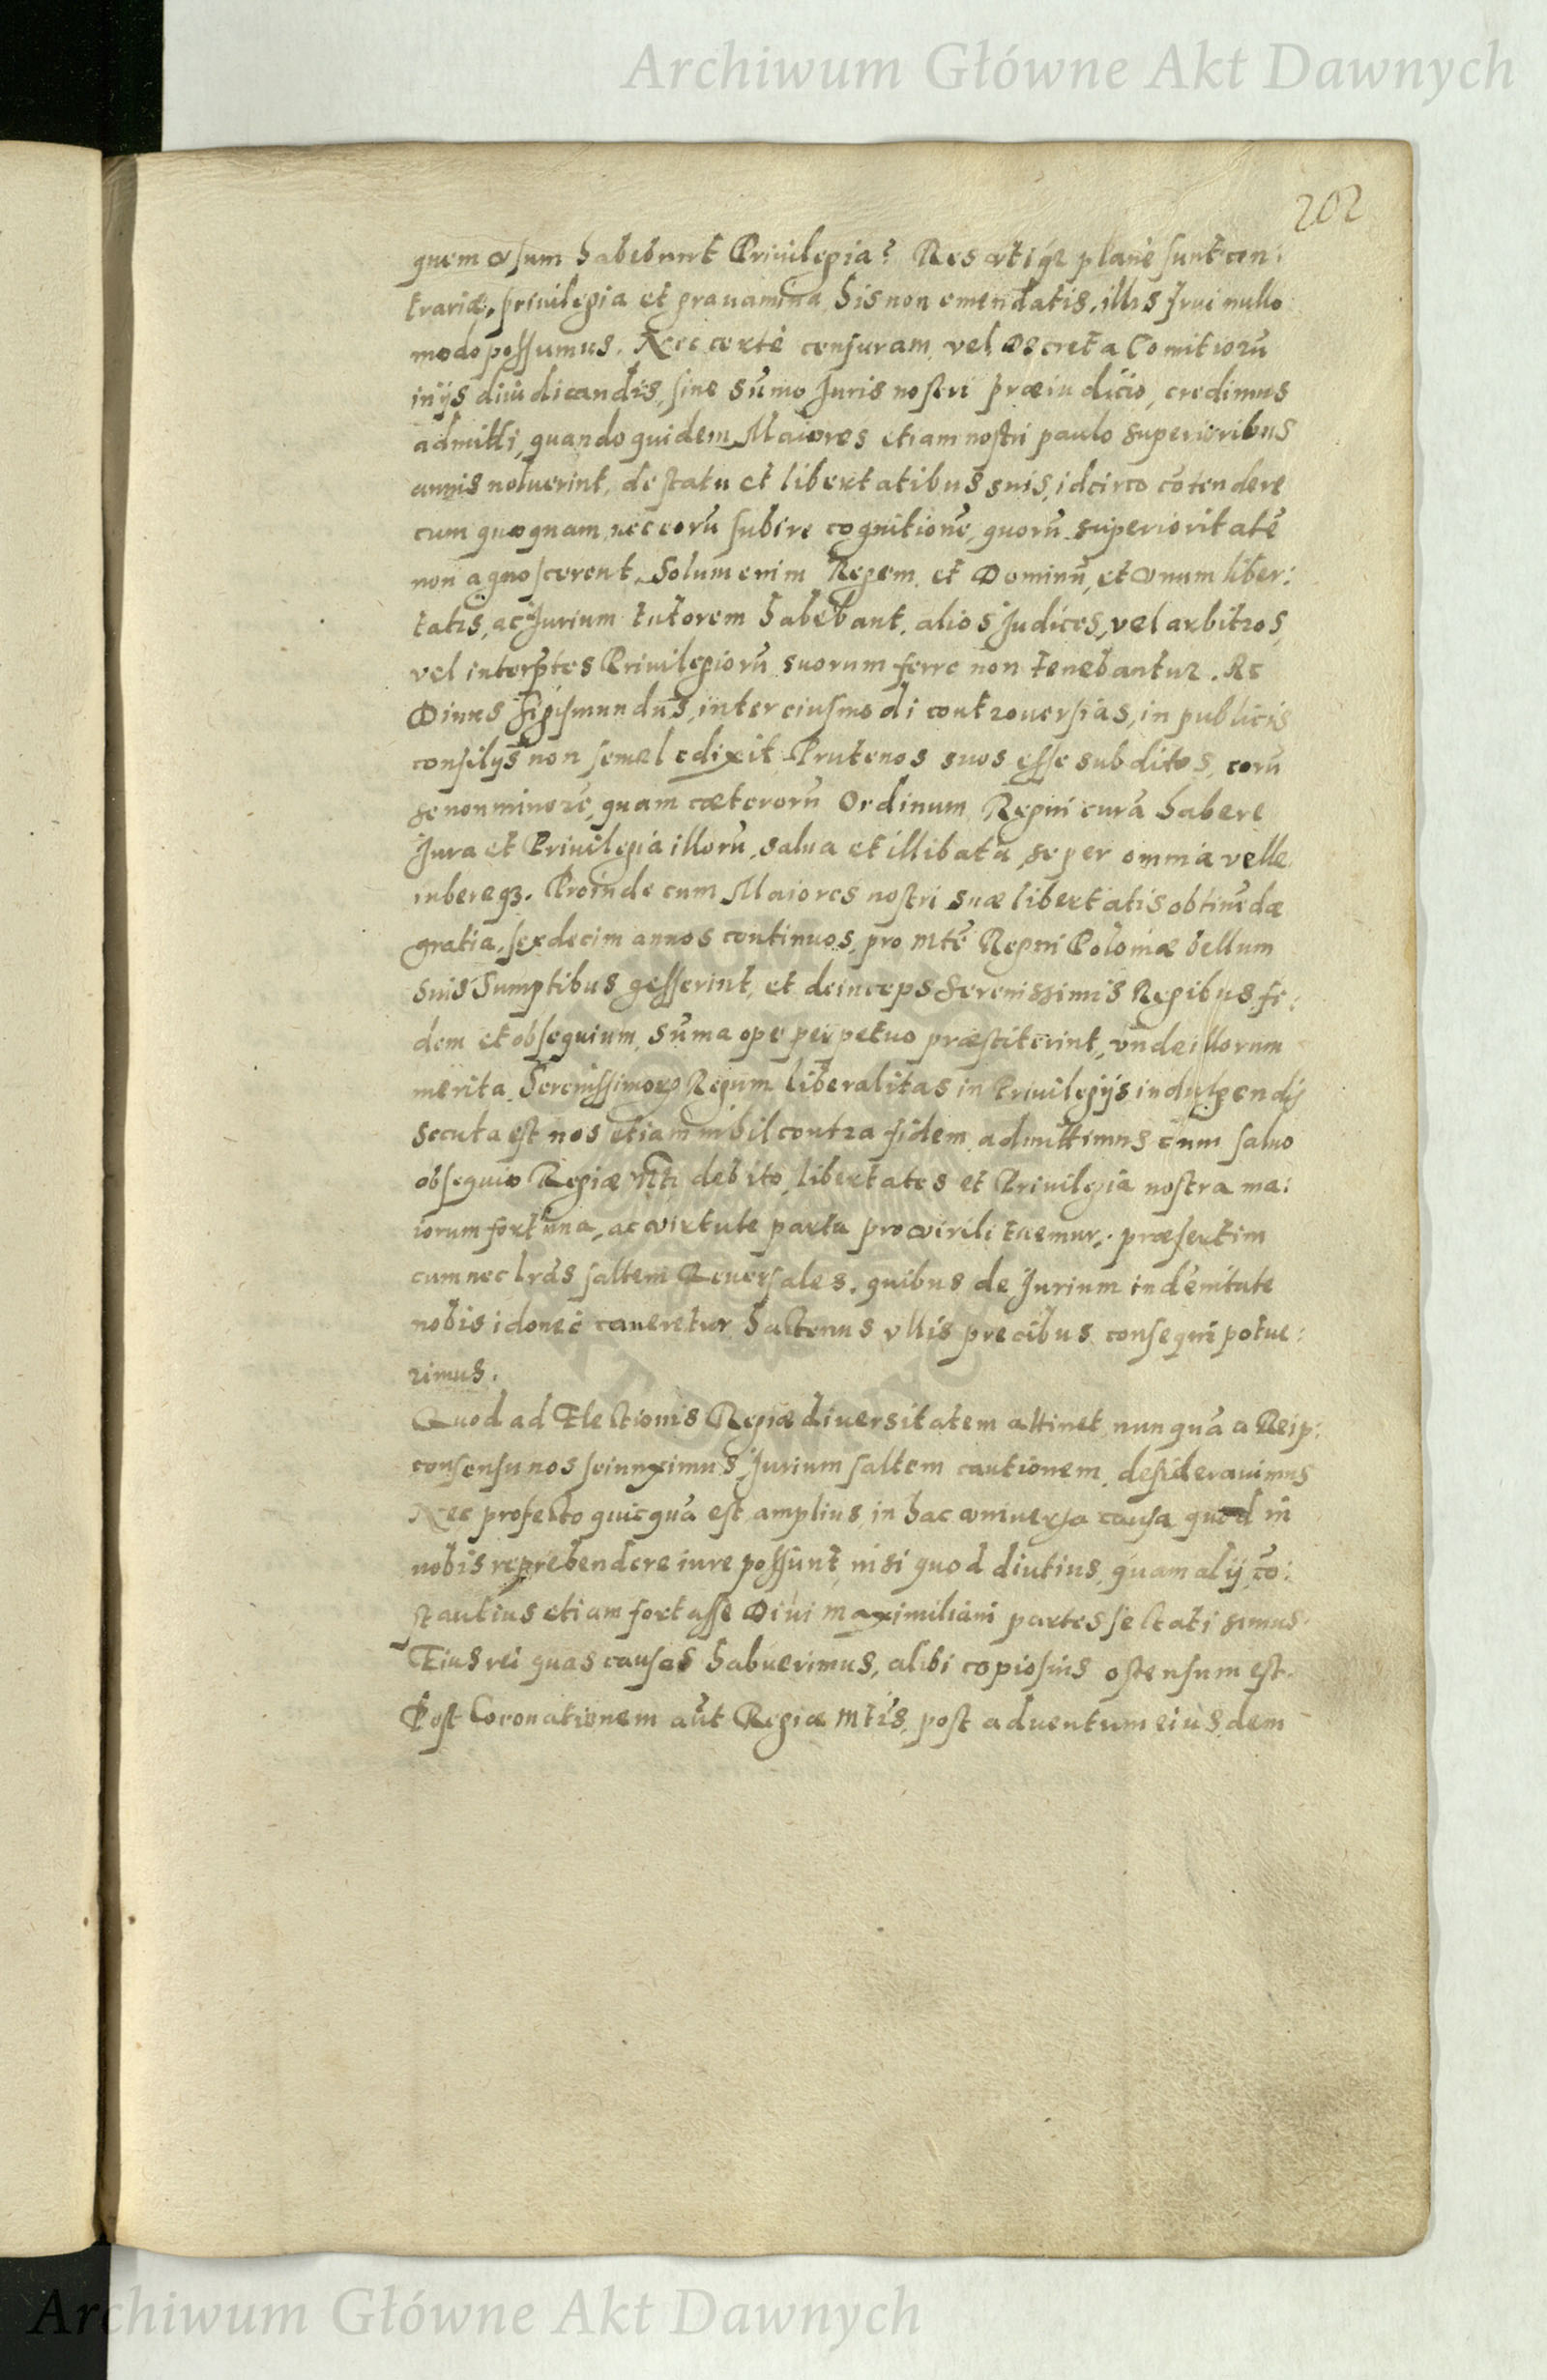 Archiwum Główne Akt Dawnych
202
quem vsum habebunt Priuilegia? Res
plane sunt con:
trariæ, priuilegia et grauamina his non emendatis, illis frui nullo
modo possumus. Nec certè censuram, vel Decreta Comitiorū
in ijs diiudicandis, sine sūmo Juris nostri præiudicio, credimus
admitti, quandoquidem Maiores etiam nostri paulo superioribus
annis noluerint, de statu et libertatibus suis, idcirco cōtendere
cum quoquam, nec eorū subire cognitionē, quorū superioritatē
non agnoscerent. Solum enim Regem et Dominū, et vnum liber:
tatis, ac Jurium tutorem habebant, alios Judices, vel arbitros,
vel interp̄tes Priuilegiorū suorum ferre non tenebantur. Ac
Diuus Sigismundus, inter eiusmodi controuersias, in publicis
consilijs non semel edixit Prutenos suos esse subditos, eorū
se non minorē, quam cæterorū Ordinum Regni curā habere
Jura et Priuilegia illorū, salua et illibata, se per omnia velle
iubereqȝ. Proinde cum Maiores nostri suæ libertatis obtinēdæ
gratia, sexdecim annos continuos, pro Mtē Regni Poloniæ bellum
suis Sumptibus gesserint, et deinceps Serenissimis Regibus fi:
dem et obsequium, sūma ope perpetuo præstiterint, vnde illorum
merita Serenissimoꝝ Regum liberalitas in Priuilegijs indulgendis
secuta est nos etiam nihil contra fidem admittimus cum saluo
obsequio Regiæ Mti debito, libertates et Priuilegia nostra ma:
iorum fortuna, ac virtute parta pro virili tuemur, præsertim
cum nec lrās saltem Reuersales, quibus de Jurium indēnitate
nobis idoneè caueretur hactenus vllis precibus consequi potue:
rimus.
Quod ad Electionis Regiæ diuersitatem attinet, nunquā a Reip:
consensu nos seiunximus, Jurium saltem cautionem desiderauimus
Nec profecto quicquā est amplius, in hac vniuersa causa quod in
nobis reprehendere iure possunt, nisi quod diutius, quam alij, cō:
stantius etiam fortasse Diui Maximiliani partes sectati simus.
Eius rei quas causas habuerimus, alibi copiosius ostensum est.
Post Coronationem aūt Regiæ Mtis, post aduentum eiusdem
Archiwum Główne Akt Dawnych